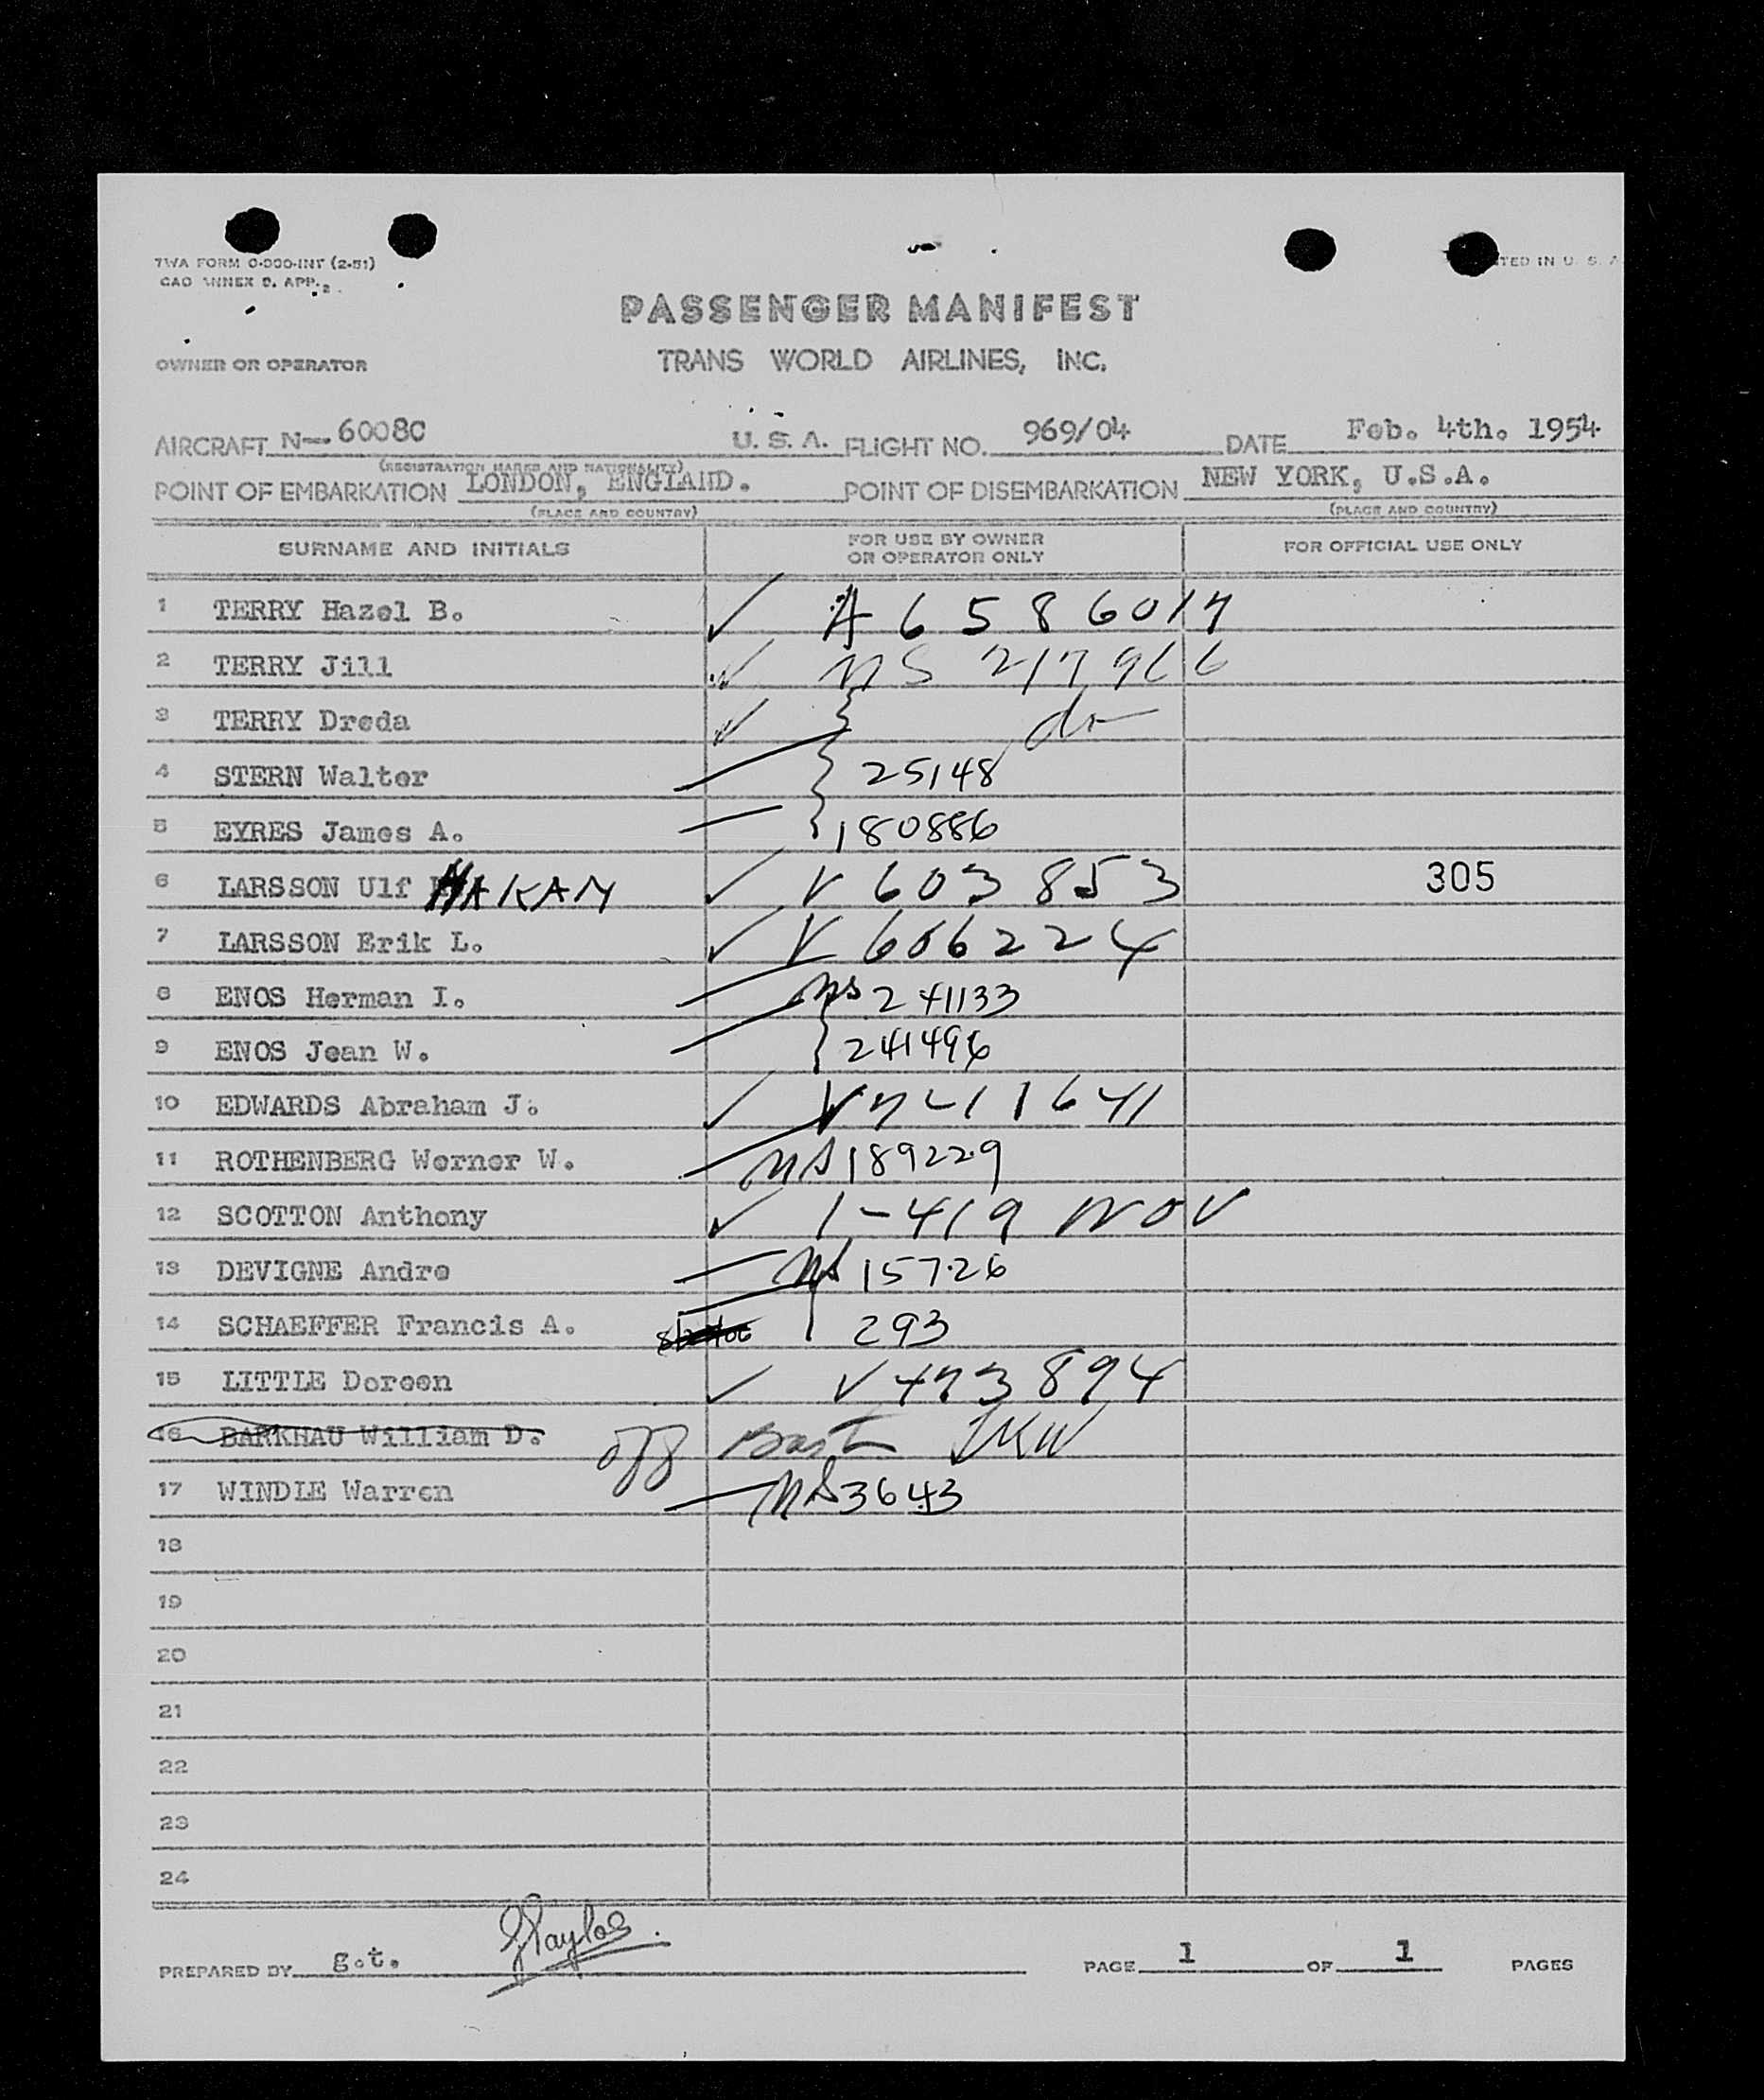 TWA FORM O-300-INT (2-51)
CAO ANNEX 9. APP. 2
PASSENGER MANIFEST
OWNER OR OPERATOR TRANS WORLD AIRLINES, INC.
AIRCRAFT N— 6008C U. S. A. FLIGHT NO. 969/04 DATE Feb. 4th. 1954
(REGISTRATION MARKS AND NATIONALITY)
POINT OF EMBARKATION LONDON, ENGLAND. POINT OF DISEMBARKATION NEW YORK, U.S.A.
(PLACE AND COUNTRY) (PLACE AND COUNTRY)
SURNAME AND INITIALS FOR USE BY OWNER OR OPERATOR ONLY FOR OFFICIAL USE ONLY
1 TERRY Hazel B. ✓ A 6 5 8 6 0 1 7
2 TERRY Jill ✓ NS 217966
3 TERRY Dreda ✓ do
4 STERN Walter 25148
5 EYRES James A. 180886
6 LARSSON Ulf HAKAN ✓ V 603 853 305
7 LARSSON Erik L. ✓ V 606224
8 ENOS Herman I. NS 241133
9 ENOS Jean W. 241496
10 EDWARDS Abraham J. ✓
11 ROTHENBERG Werner W. NS 189229
12 SCOTTON Anthony ✓ 1-419 NOV
13 DEVIGNE Andre NS 15726
14 SCHAEFFER Francis A. 293
15 LITTLE Doreen ✓ V 473 894
16 BARKHAU William D. off
17 WINDLE Warren NS 3643
18
19
20
21
22
23
24
PREPARED BY g.t. GTaylor. PAGE 1 OF 1 PAGES